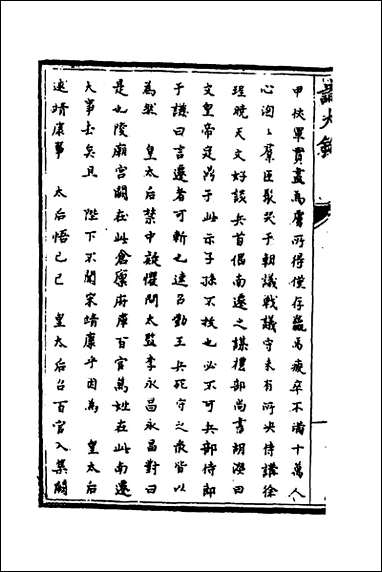 甲伕軍貲盡為虜所得僅存羸馬疲卒不滿十萬人
心洶洶羣臣聚哭于朝議戰議守未有所決侍講徐
珵曉天文好談兵首倡南遷之謀禮部尚書胡濙曰
文皇帝定鼎于此示子孫不拔也必不可兵部侍郎
于謙曰言遷者可斬也速召勤王兵死守之衆皆以
為然　皇太后禁中疑懼問太監李永昌永昌對曰
是也陵廟宮闕在此倉廩府庫百官萬姓在此南遷
大事去矣且　陛下不聞宋靖康乎因為　皇太后
述靖康事　太后悟己巳　皇太后召百官入集闕